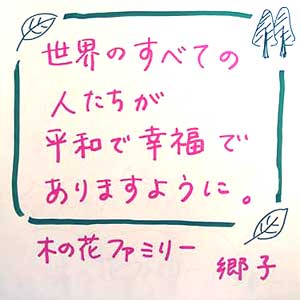 世界のすべての
人たちが
平和で幸福で
ありますように。
木の花ファミリー
郷子